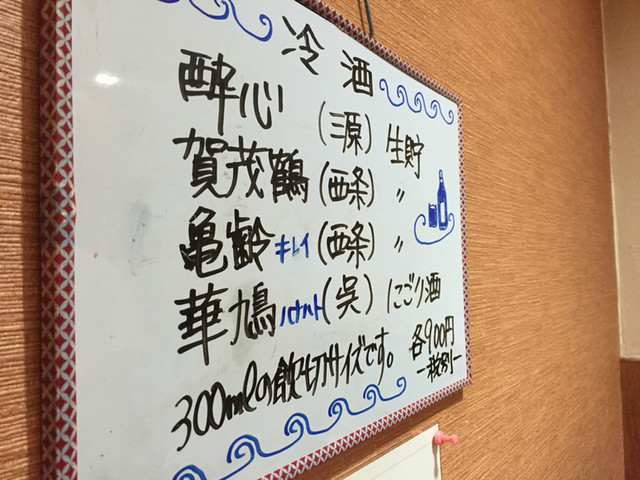 冷酒
酔心 (三原) 生貯
賀茂鶴 (西条) 〃
亀齢 キレイ (西条) 〃
華鳩 ハナハト (呉) にごり酒
300mlの飲切サイズです。 各900円
ー税別ー